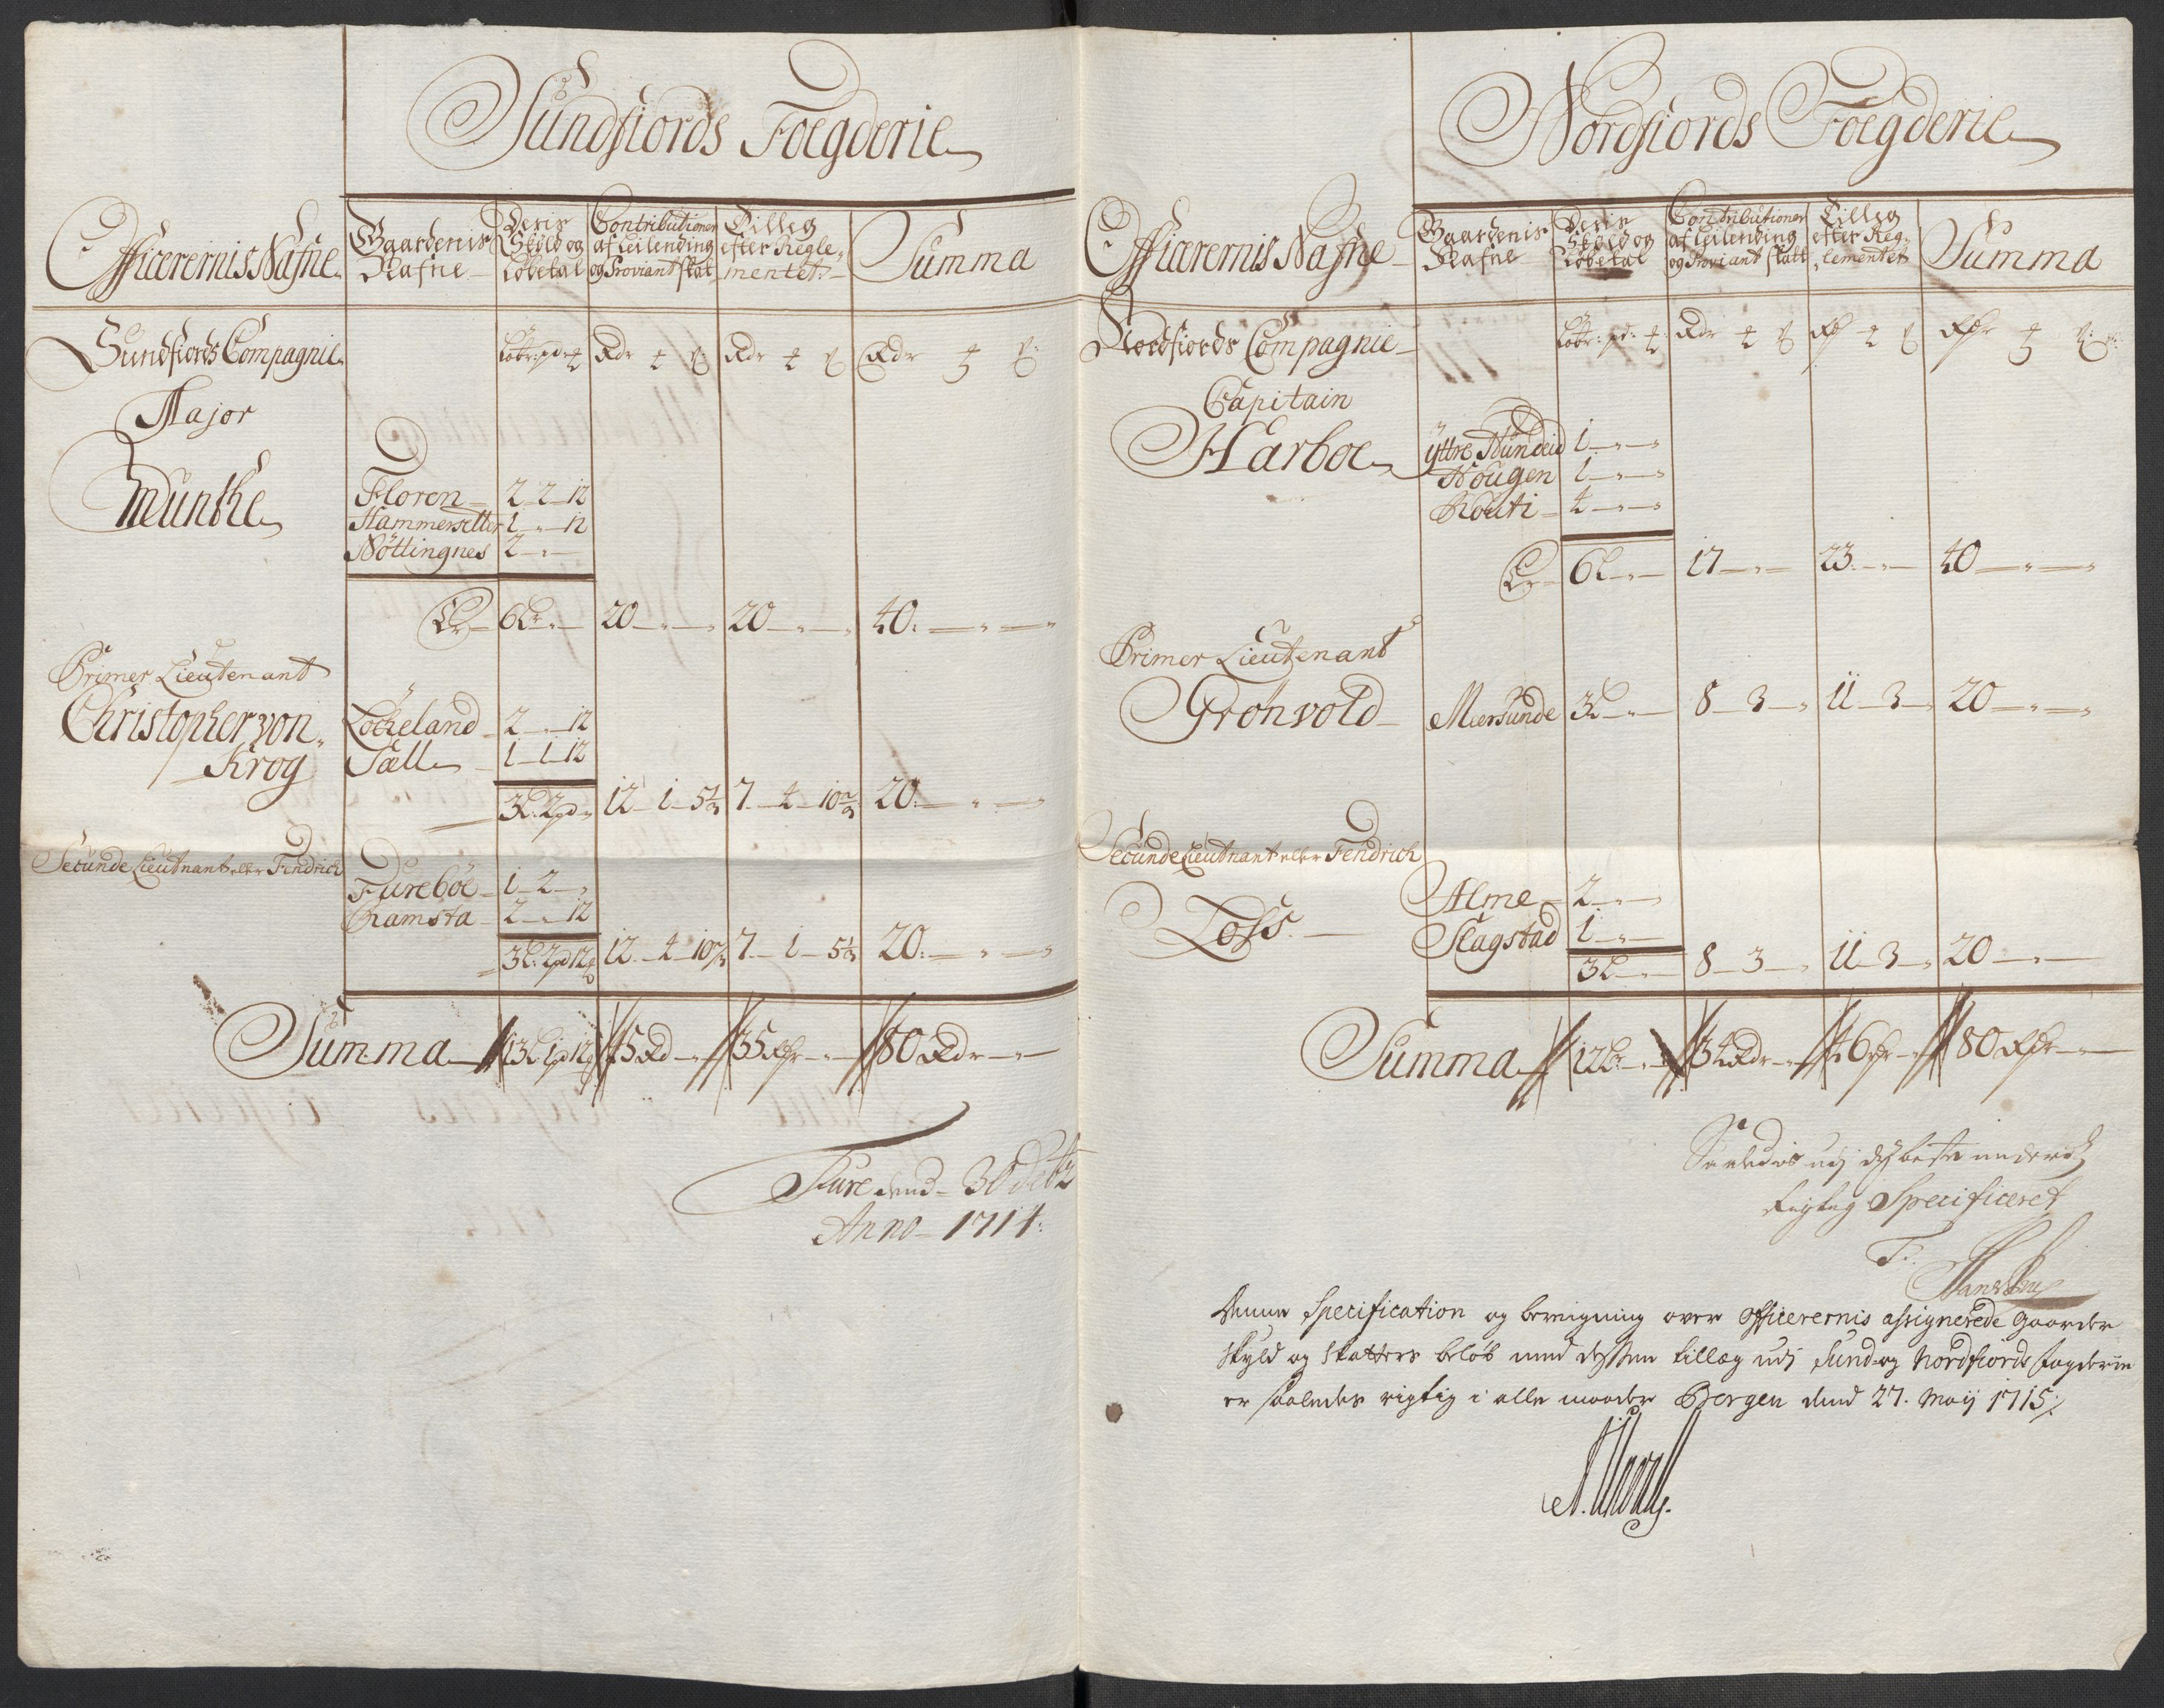 Sundfiords Foegderie
Officerernis Nafne
Gaardenis Nafne
Deris Skyld og Løbetal
Contributioner af Leilending og Proviant skat
Tilleg efter Reglementet
Summa
Sundfiords Compagnie
Løbr: pd:
Rdr
Rdr
Rdr
Major
Munthe
Floren 2 2 12
Hammersetter 1 " 12
Nöttingnes 2 "
Er 6L " 20 " " 20 " " 40 " "
Primer Lieutenant
Christopher von Krog
Löckeland 2 " 12
Sælle 1 1 12
3L 2pd " 12 1 5⅓ 7 4 10⅔ 20 " "
Secunde Lieutnant eller Fendrich
Fureböe 1 2 "
Ramsta 2 " 12
3L 2pd 12 12 4 10⅔ 7 1 5⅓ 20 " "
Summa 13L 1pd 12 45 Rd 35 Rdr 80 Rdr
Fure dend 30 Anno 1714:
Nordfiords Foegderie
Officerernis Nafne
Gaardenis Nafne
Deris Skyld og Løbetal
Contributioner af Leilending og Proviant skatt
Tilleg efter Reglementet
Summa
Nordfiords Compagnie
Løbr: pd:
Rdr
Capitain
Harboe
yttre Nundeid 1 " "
Hougen 1 " "
4 " "
Er 6L " 17 " " 23 " " 40 " "
Primer Lieutenant
Gronvold
Mærsunde 3L " 8 3 " 11 3 " 20 " "
Secunde Lieutnant eller Fendrich
Loss
Alme 2 " "
Flagstad 1 " "
3L " 8 3 " 11 3 " 20 " "
Summa 12L 34 Rdr 46 Rdr 80 Rdr
Saaledis udj
Rigtig Specificeret
Denne Specification og beregning over Officerernis assignerede gaarder
Skyld og Skatters beløb med dessen tillæg udj Sund- og Nordfiords fogderier
er saaledes rigtig i alle maader Bergen dend 27. Maij 1715